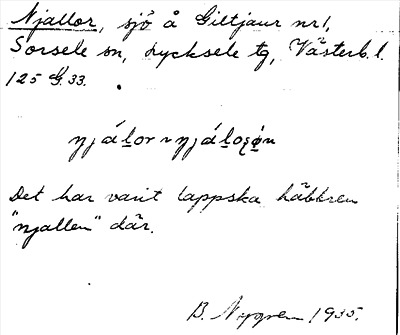 Njallor, sjö å Giltjaur nr 1,
Sorsele sn, Lycksele tg, Västerb. l.
125 G. 33.
Det har varit lappska häbbren
"njallen" där.
B. Nygren 1935.